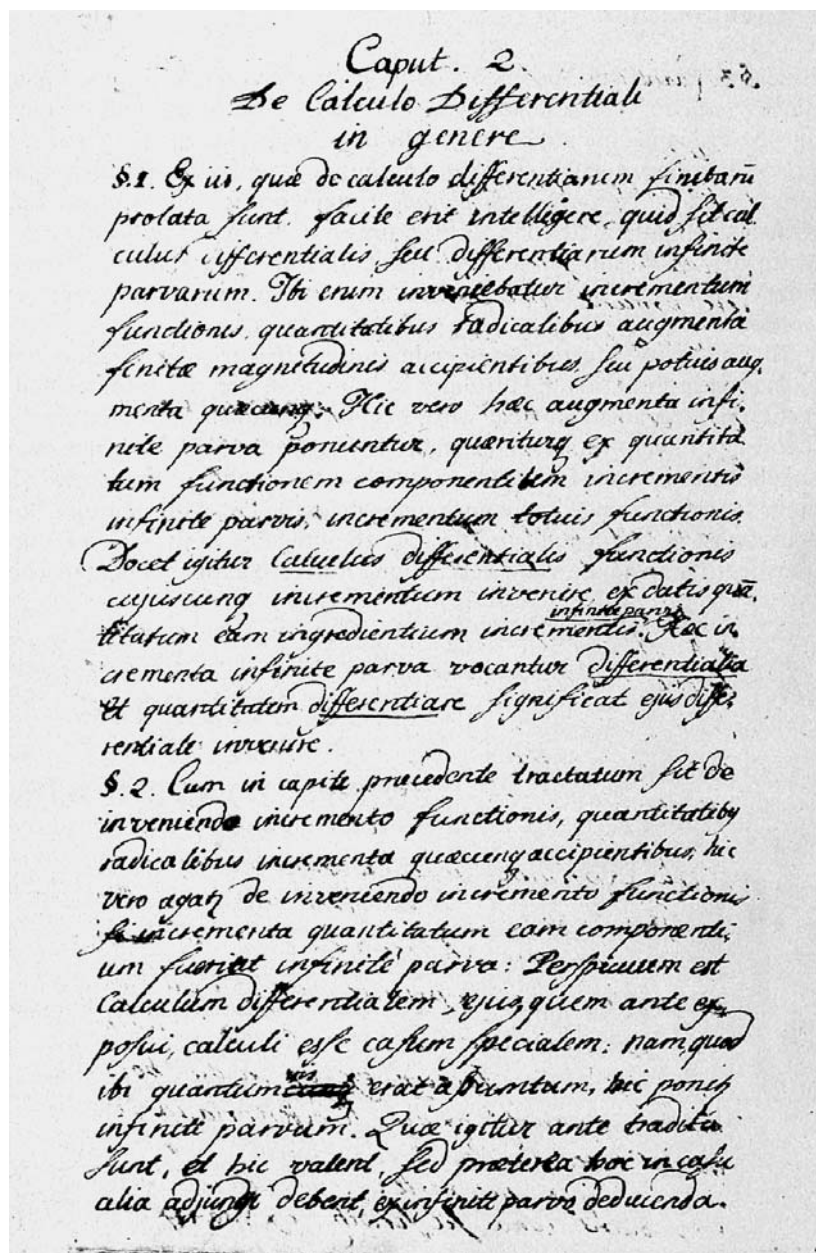 Caput. 2.
De Calculo Differentiali
in genere
§.1. Ex iis, quæ de calculo differentiarum finitarū
prolata sunt facile erit intelligere, quid sit cal
culus differentialis, seu differentiarum infinite
parvarum. Ibi enim inveniebatur incrementum
functionis, quantitatibus radicalibus augmenta
finitæ magnitudinis accipientibus, seu potius aug,
menta quæcunq;. Hic vero hæc augmenta infi,
nite parva ponuntur, quæriturq ex quantita
tum functionem componentium incrementis
infinite parvis, incrementum totius functionis.
Docet igitur Calculus differentialis functionis
cujuscunq incrementum invenire ex datis quā,
infinite parvis
titatum eam ingredientium incrementis. Hæc in,
crementa infinite parva vocantur differentialia
et quantitatem differentiare significat ejus diffe,
rentiale invenire.
§.2. Cum in capite præcedente tractatum sit de
inveniendo incremento functionis, quantitatiby
radicalibus incrementa quæcunq accipientibus, hic
vero agatꝫ de inveniendo incremento functionis
si incrementa quantitatum eam componenti,
um fuerint infinite parva: Perspicuum est
Calculum differentialem, ejus, quem ante ex,
posui, calculi esse casum specialem; nam, quod
vis
ibi quantum erat assumtum, hic ponitꝫ
infinite parvum. Quæ igitur ante tradita
sunt, et hic valent, sed præterea hoc in casu
alia adjungi debent, ex infinite parvo deducenda.